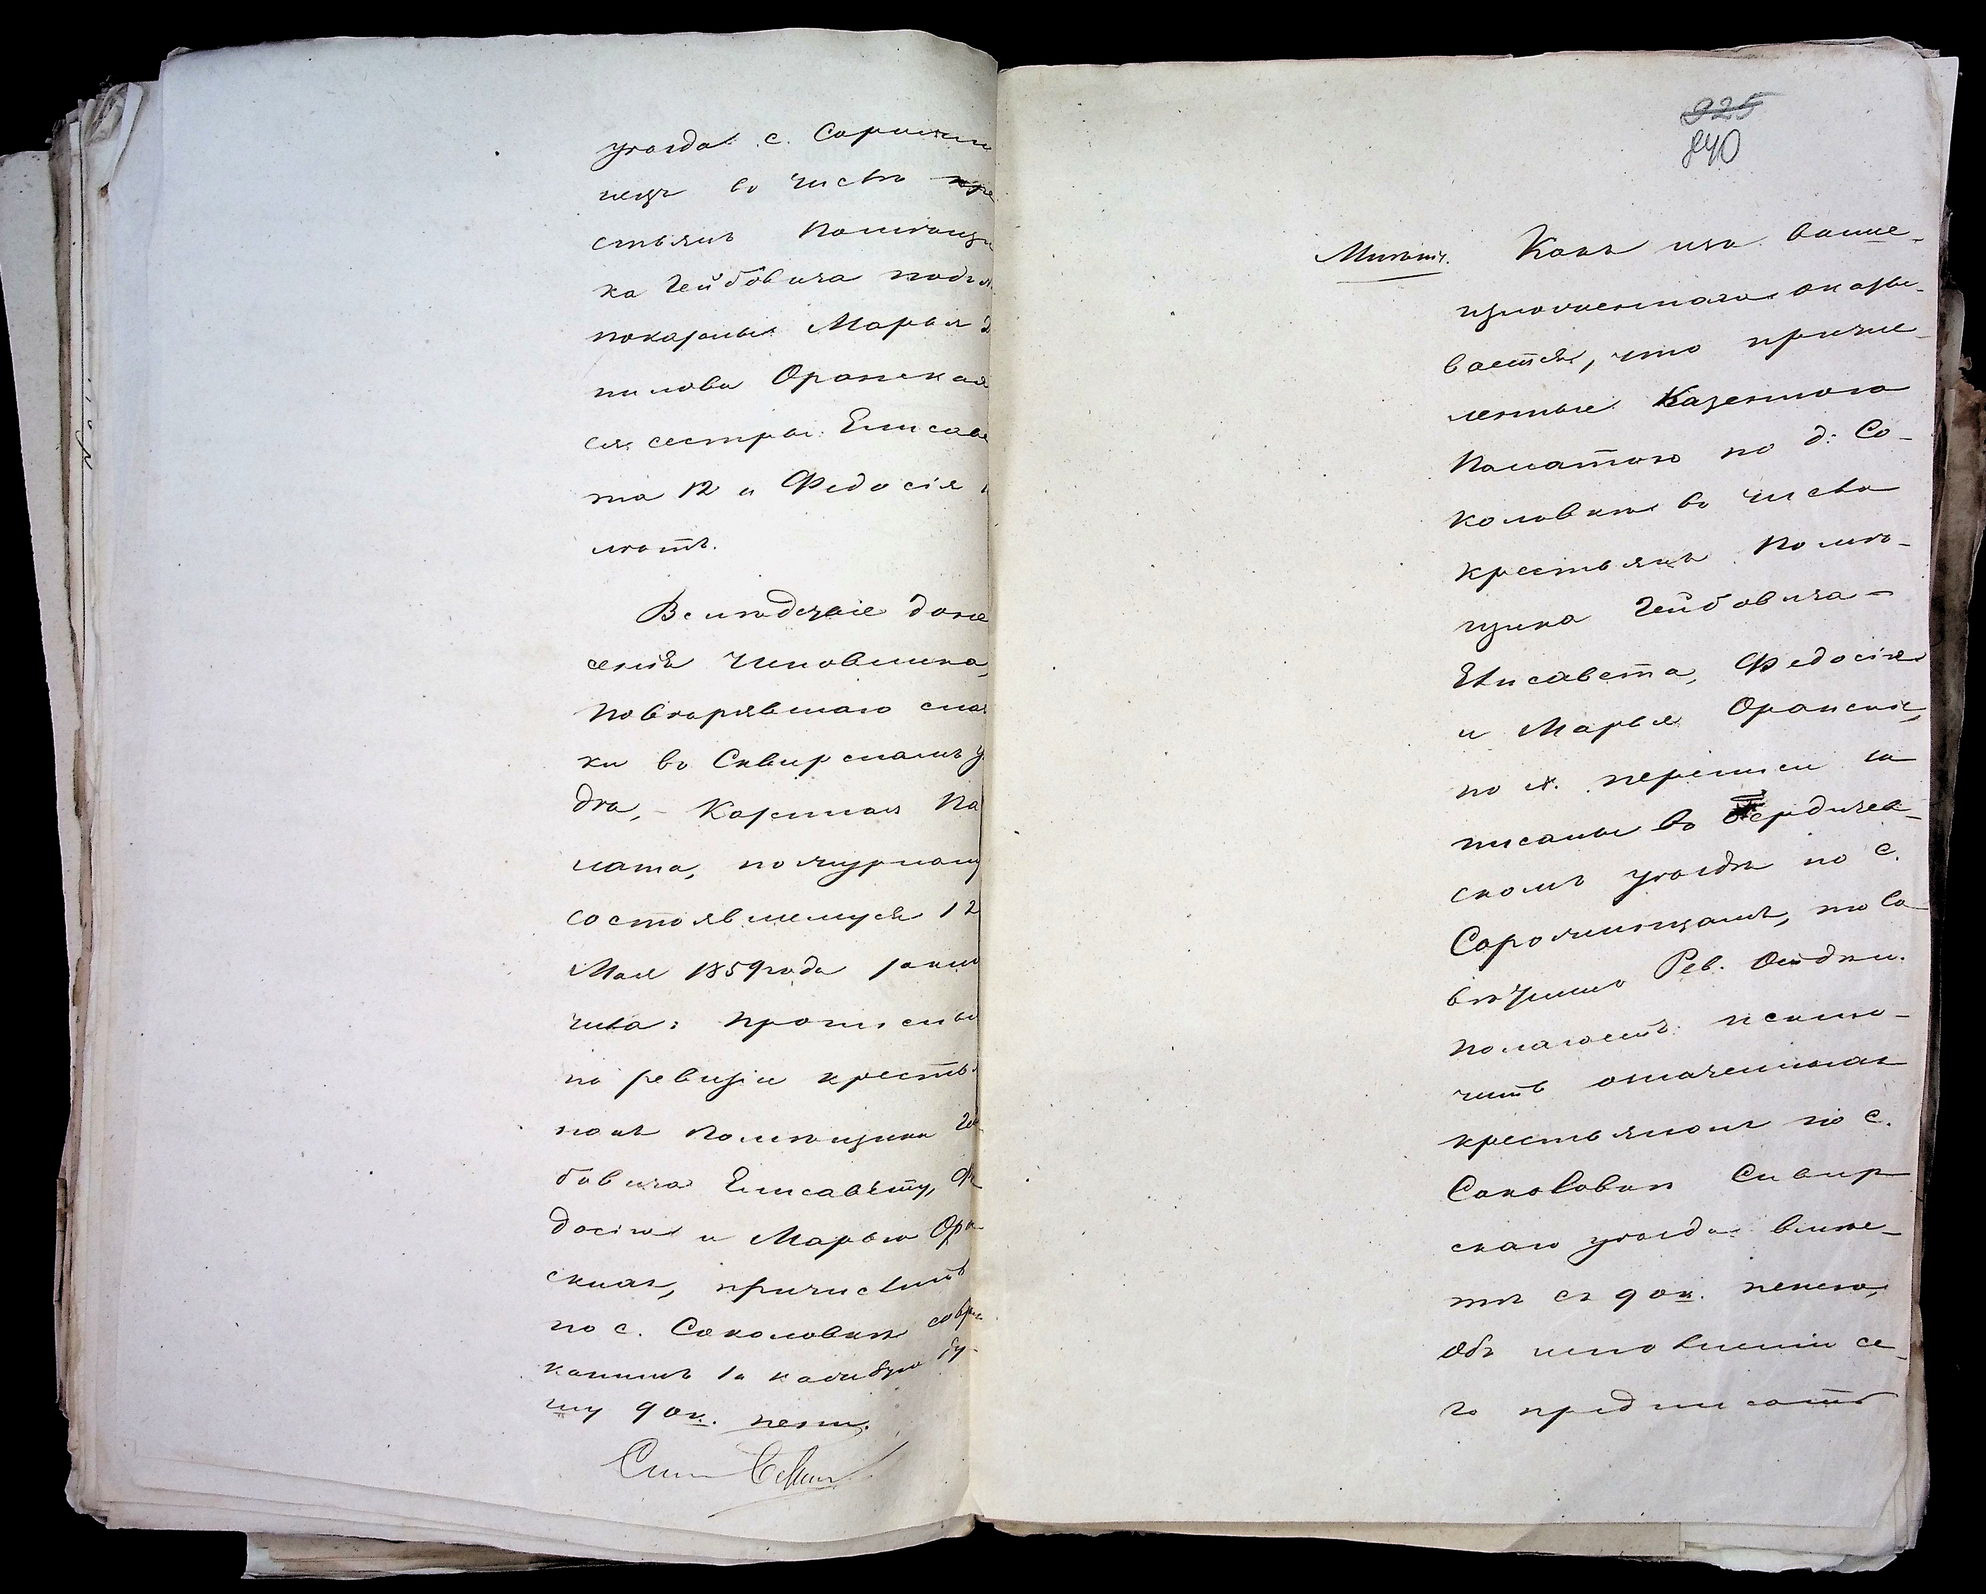 уѣзда с. Сорочин
нецъ въ числѣ кре
стьянъ Помѣщи
ка Гейбовича
показаны Марья
нилова Оранская
ея сестры: Елисаве
та 12 и Федосія
лѣтъ.
Вслѣдствіе доне
сенія Чиновника,
повѣрявшаго сказ
ки въ Сквирскомъ у
дѣ, - Казенная Па
лата, по журналу
состоявшемуся 12
Мая 1859 года заклю
чила:
по ревизіи кресть
нокъ Помѣщика Гей
бовича Елисавету, Фе
досію и Марью Оран
скихъ, причислить
по с. Соколовкѣ со взы
каніемъ за каждую ду-
шу 90 к. пени.
925
840
Мнѣніе. Какъ изъ выше-
изложеннаго оказы-
вается, что причи-
ленные Казенною
Палатою по д: Со-
коловкѣ въ числѣ
крестьянъ Помѣ-
щика Гейбовича -
Елисавета, Федосія
и Марья Оранскія,
по X. переписи за
писаны въ Бердичев-
скомъ уѣздѣ по с.
Сорочинцамъ, то За
вѣдущій Рев. Отдѣл.
полагаетъ исклю-
чить означенныхъ
крестьянокъ по с.
Соколовкѣ Сквир
скаго уѣзда вмѣс-
тѣ съ 90 к. пенею,
Объ исполненіи се-
го предписать